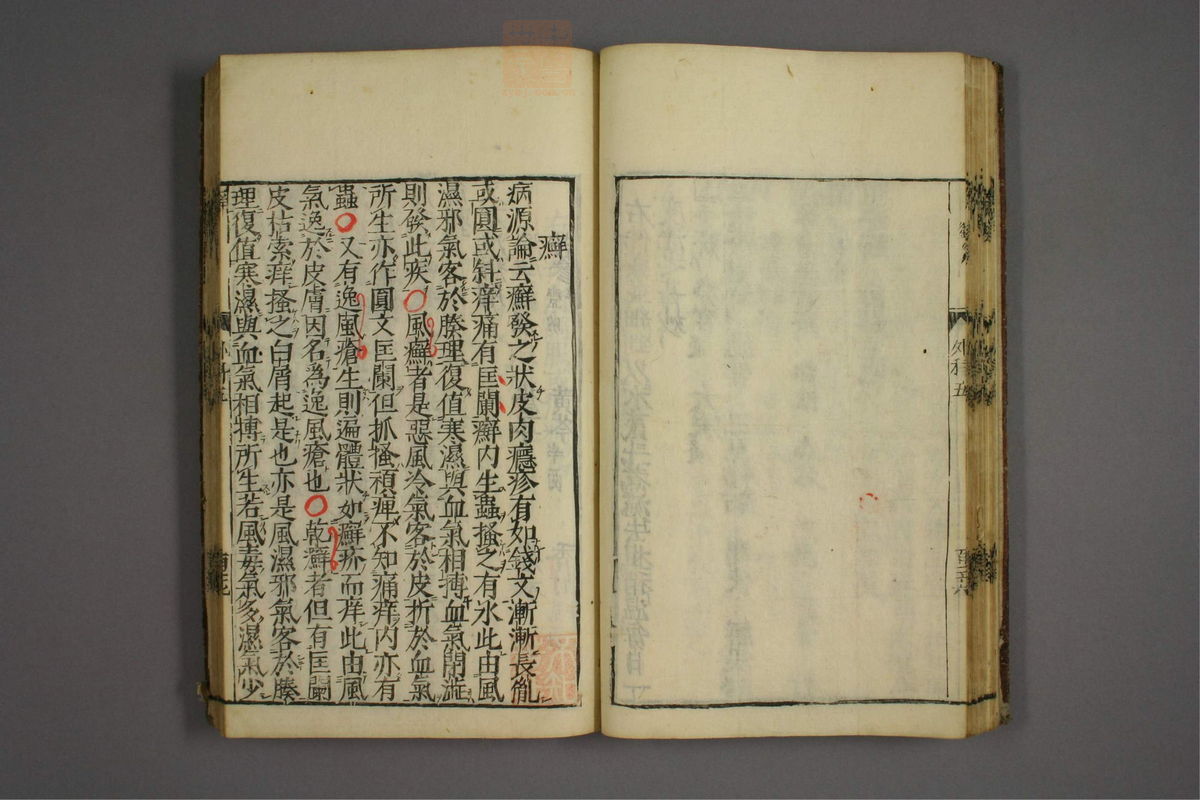 外科五
癬
病源論云癬發之狀皮肉癮疹有如錢文漸漸長胤
或圓或斜痒痛有匡闌癬内生蟲搔之有水此由風
濕邪氣客於腠理復值寒濕與血氣相搏血氣閉澁
則發此疾風癬者是惡風冷氣客於皮折於血氣
所生亦作圓文匡闌但抓搔頑痺不知痛痒内亦有
蟲又有逸風瘡生則遍體狀如癬疥而痒此由風
氣逸於皮膚因名為逸風瘡也乾癬者但有匡闌
皮枯索痒搔之白屑起是也亦是風濕邪氣客於腠
理復值寒濕與血氣相搏所生若風毒氣多濕氣少